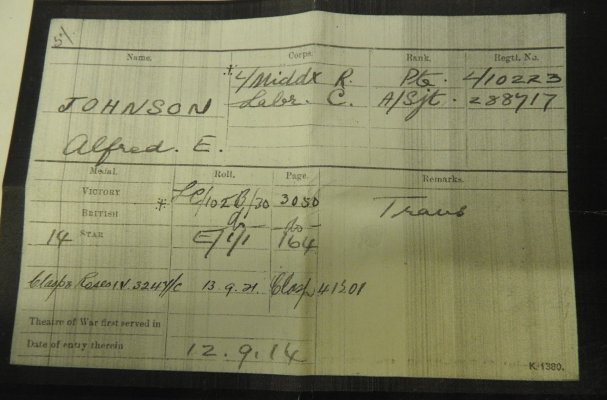 Name. Corps. Rank. Regtl. No.
* 4/Middx R. Pte. 4/10223
JOHNSON Labr. C. A/Sjt. 288717
Alfred. E.
Medal. Roll. Page. Remarks.
VICTORY * LC/102B/30 3050 Trans
BRITISH do do
14 STAR E/1/1 164
Clasp & Roses 13.9.21. Clasp
Theatre of War first served in
Date of entry therein 12.9.14
K. 1380.